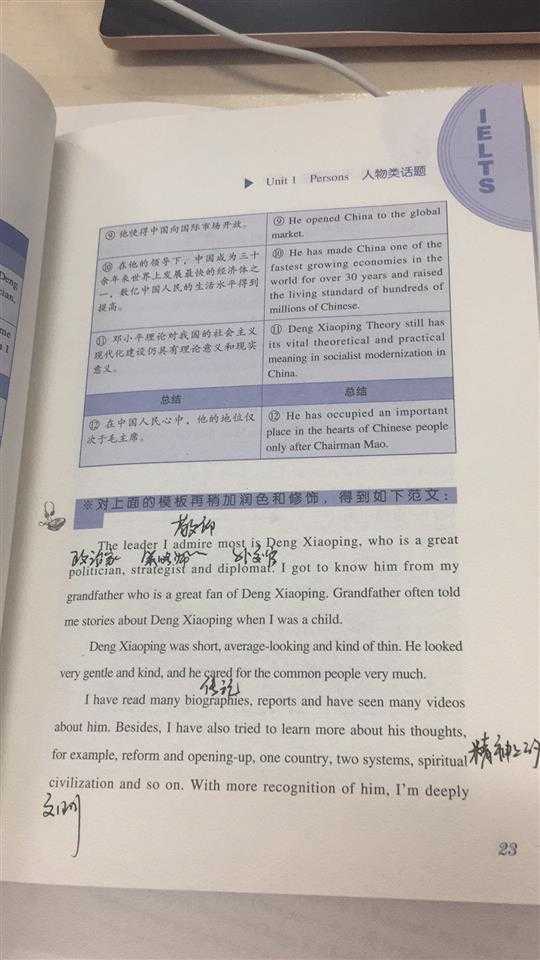 IELTS
▶ Unit 1 Persons 人物类话题
⑨ 他使得中国向国际市场开放。
⑨ He opened China to the global
market.
⑩ 在他的领导下，中国成为三十
余年来世界上发展最快的经济体之
一，数亿中国人民的生活水平得到
提高。
⑩ He has made China one of the
fastest growing economies in the
world for over 30 years and raised
the living standard of hundreds of
millions of Chinese.
⑪ 邓小平理论对我国的社会主义
现代化建设仍具有理论意义和现实
意义。
⑪ Deng Xiaoping Theory still has
its vital theoretical and practical
meaning in socialist modernization in
China.
总结
总结
⑫ 在中国人民心中，他的地位仅
次于毛主席。
⑫ He has occupied an important
place in the hearts of Chinese people
only after Chairman Mao.
※对上面的模板再稍加润色和修饰，得到如下范文：
敬仰
The leader I admire most is Deng Xiaoping, who is a great
政治家 策略师 外交官
politician, strategist and diplomat. I got to know him from my
grandfather who is a great fan of Deng Xiaoping. Grandfather often told
me stories about Deng Xiaoping when I was a child.
Deng Xiaoping was short, average-looking and kind of thin. He looked
very gentle and kind, and he cared for the common people very much.
传记
I have read many biographies, reports and have seen many videos
about him. Besides, I have also tried to learn more about his thoughts,
for example, reform and opening-up, one country, two systems, spiritual
精神上的
civilization and so on. With more recognition of him, I'm deeply
文明
23